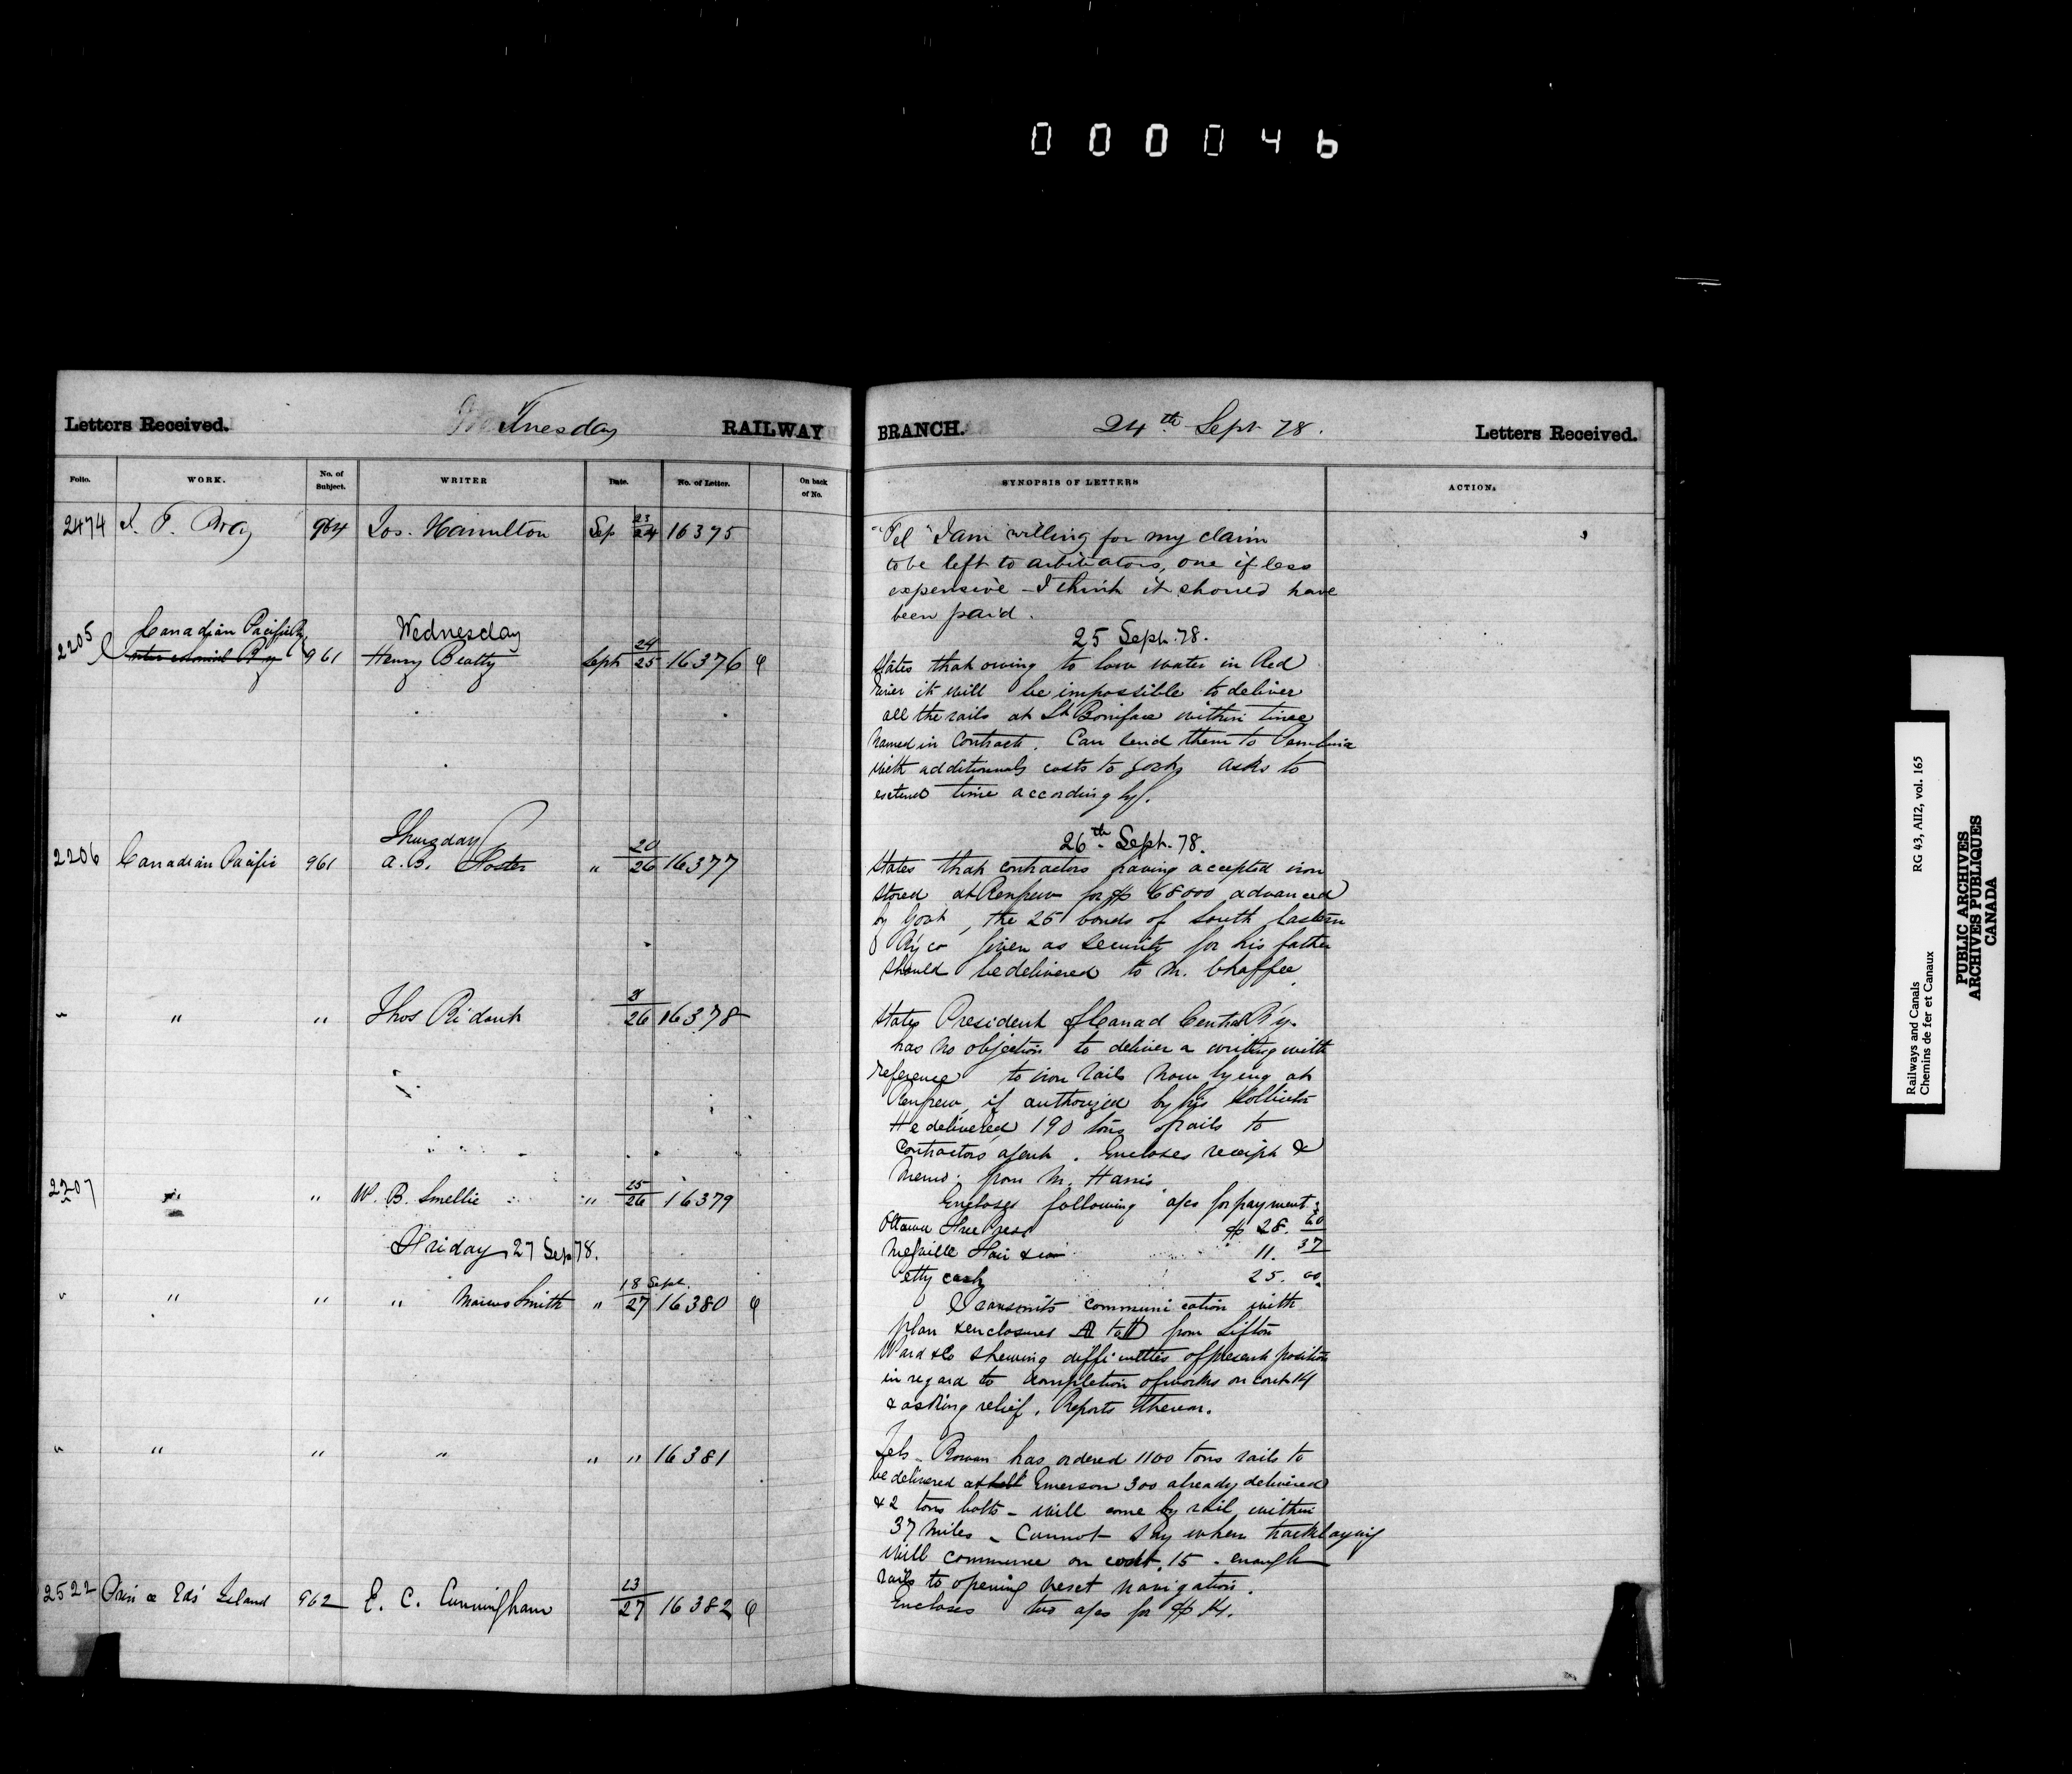 000046
Letters Received. Tuesday RAILWAY BRANCH. 24th Sept 78. Letters Received.
Folio. WORK. No. of Subject. WRITER Date. No. of Letter. On back of No. SYNOPSIS OF LETTERS ACTION.
2474 964 Jos. Hamilton Sep 23/24 16375
"Tel" I am willing for my claim
to be left to arbitrators, one if less
expensive - I think it should have
been paid.
Wednesday 25 Sept. 78.
2205 Canadian Pacific Ry 961 Henry Beatty Sept 24/25 16376
States that owing to low water in Red
River it will be impossible to deliver
all the rails at St Boniface within time
named in Contract. Can send them to Pembina
with additionnal costs to Govt, asks to
extend time accordingly.
Thursday 26th Sept. 78.
2206 Canadian Pacific 961 A. B. Foster " 20/26 16377
States that contractors having accepted iron
stored at Renfrew for $ 68000 advanced
by Govt, the 25 bonds of South Eastern
Ry Co given as security for his father
should be delivered to M. Chaffee.
" " " Thos Ridout 21/26 16378
States President of Canad Central R'y.
has no objection to deliver a writing with
reference to iron rails now lying at
Renfrew, if authorized by his Sollicitor
He delivered 190 tons of rails to
Contractors agent. Encloses receipt &
Memo. from M. Harris
2207 " " W. B. Smellie " 25/26 16379
Encloses following a/cs for payment:
Ottawa Free Press $ 28. 60
11. 37
Petty cash 25. 00
Friday 27 Sep 78.
" " " " Marcus Smith " 18 Sept./27 16380
Transmits communication with
plan & enclosures A to H from Sifton
Ward & Co shewing difficulties of present position
in regard to completion of works on cont 14
& asking relief. Reports thereon.
" " " " " " 16381
Tels - Rowan has ordered 1100 tons rails to
be delivered at Emerson 300 already delivered
& 2 tons bolts - will come by rail within
37 miles - Cannot say when tracklaying
will commence on cont. 15 - enough
rails to opening next navigation.
2522 Prince Eds' Island 962 E. C. Cunningham 23/27 16382
Encloses two a/cs for $ 14.
Railways and Canals RG 43, AII2, vol. 165
Chemins de fer et Canaux
PUBLIC ARCHIVES
ARCHIVES PUBLIQUES
CANADA